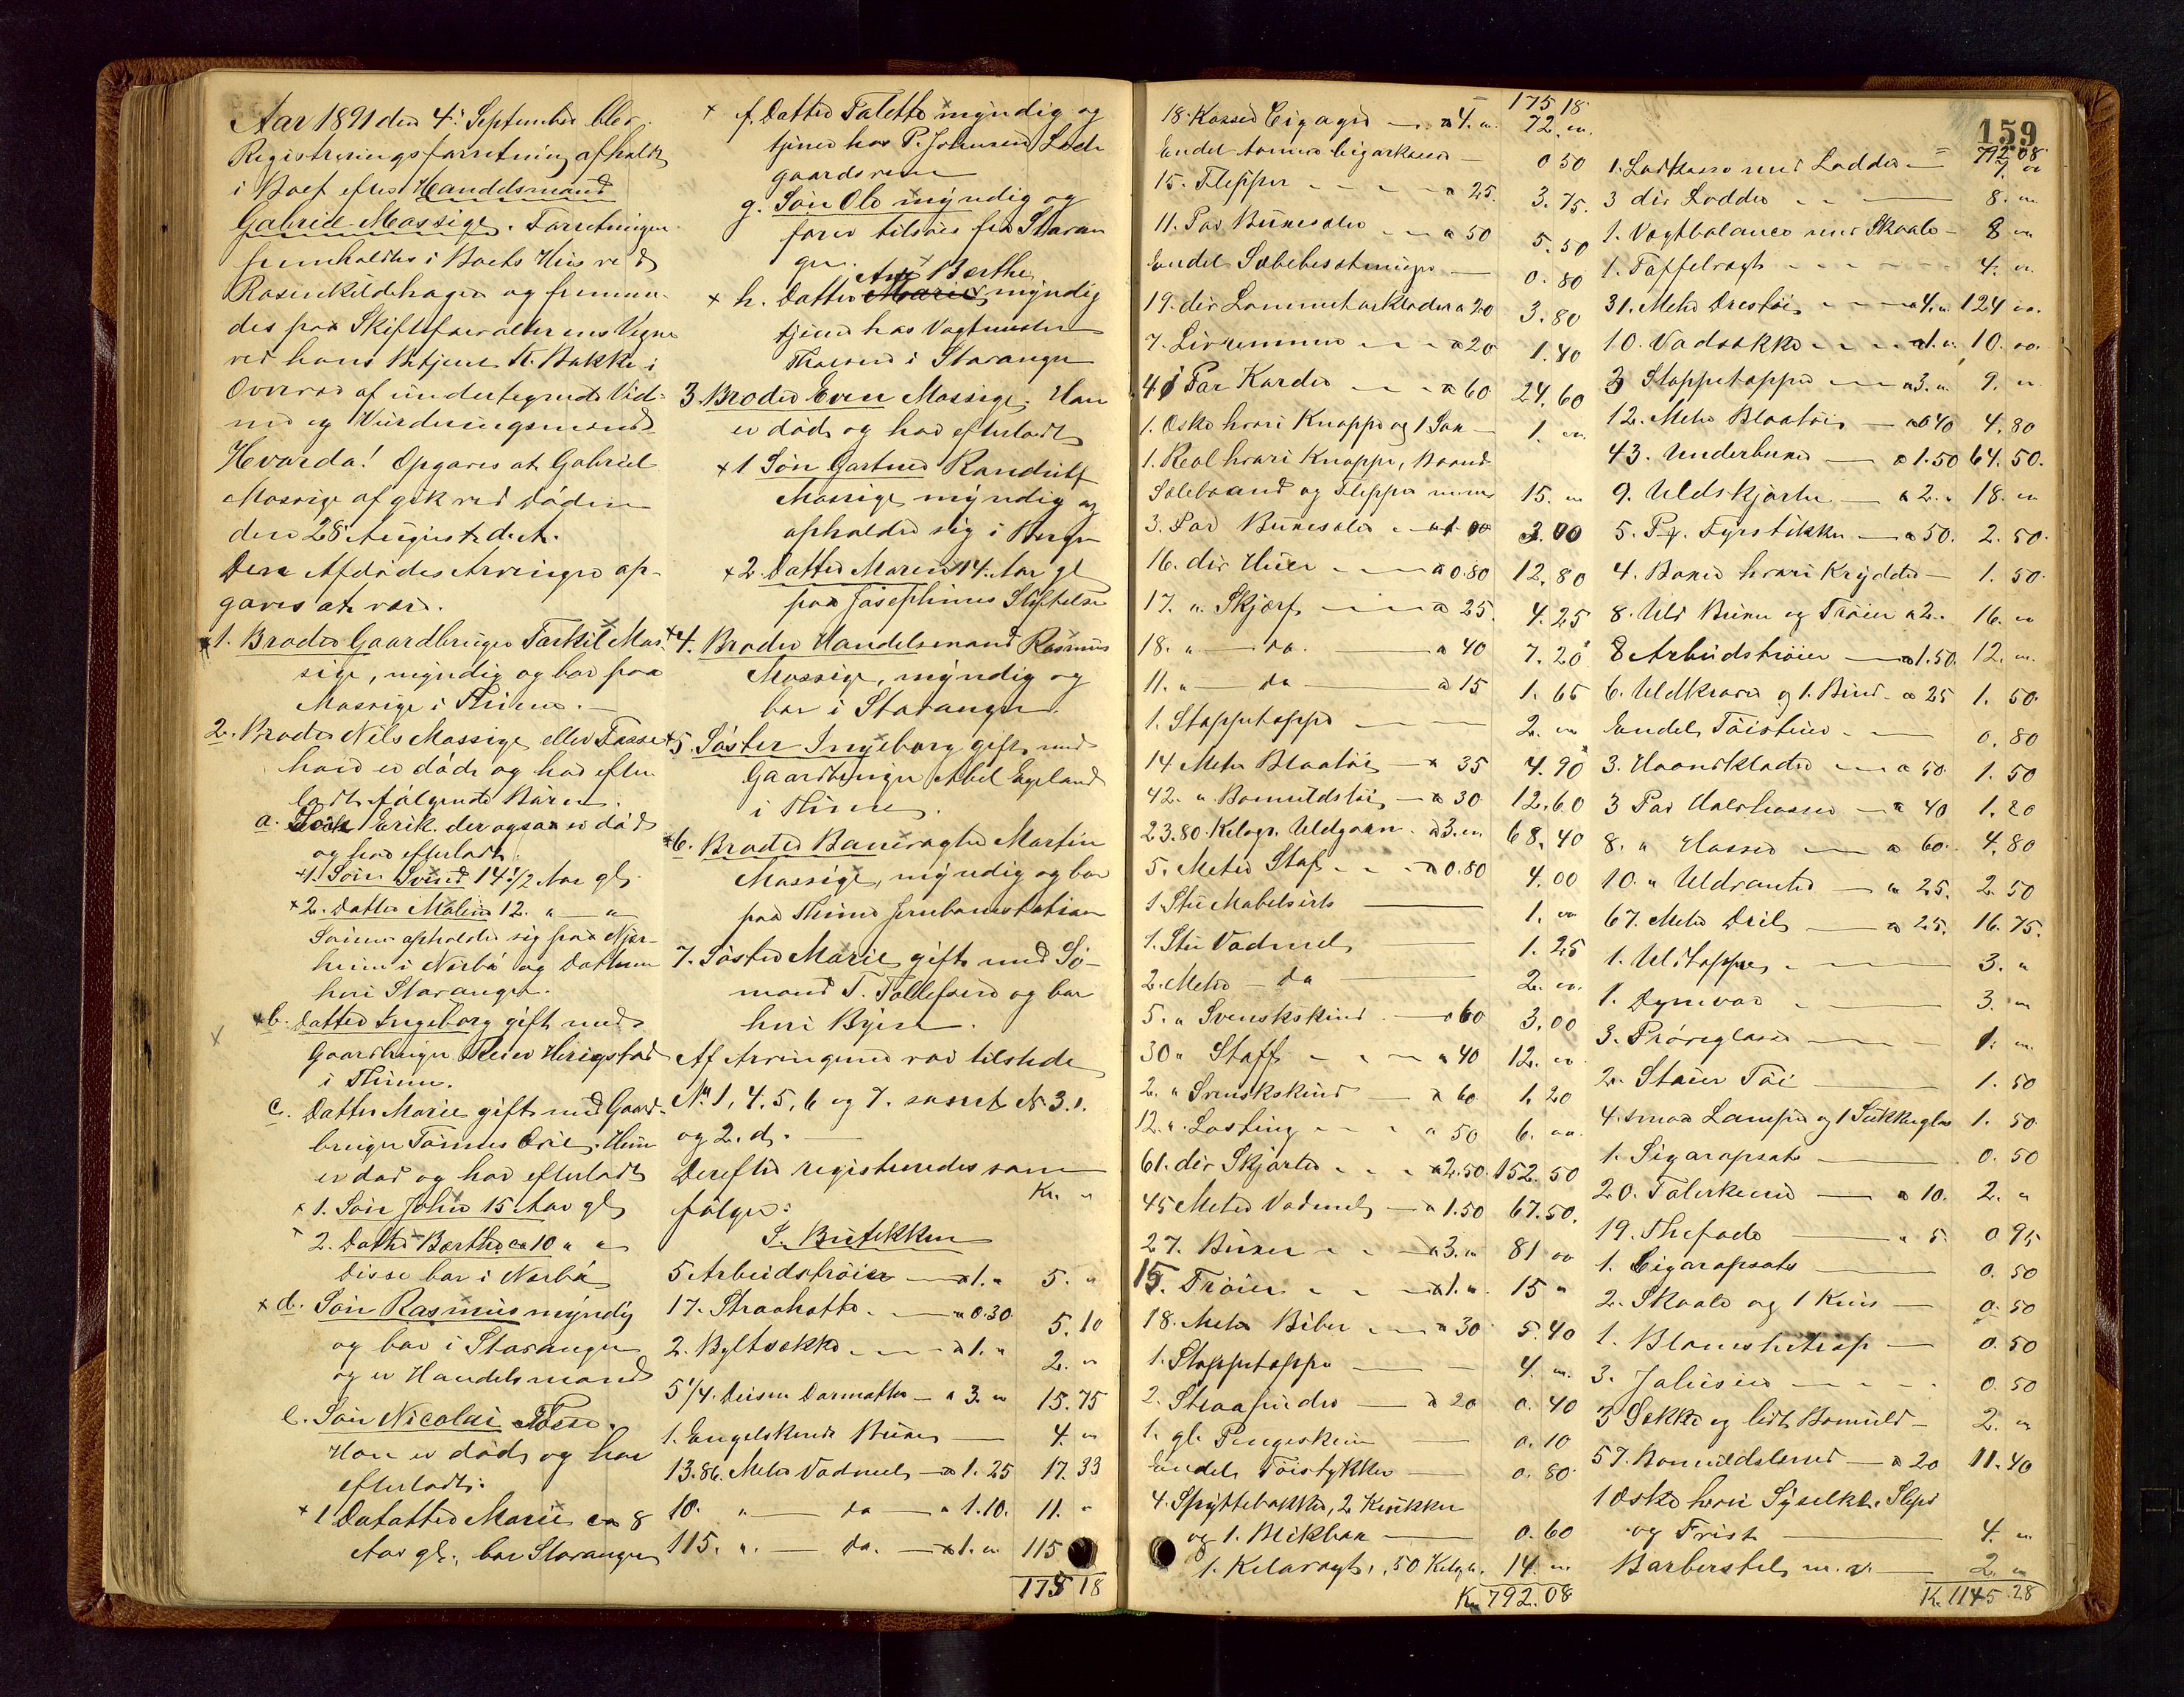 Aar 1891 den 4' September blev
Registreringsforretning afholdt
i Boet efter Handelsmand
Gabriel Mossige. Forretningen
fremholdtes i Boets Hus ved
Rosenkildehagen og fremmø-
des paa Skifteforvalterens Vegne
ved hans Betjent St. Bakke i
Overvær af undertegnede Vid-
ner og Vurderingsmænd.
Hvorda! Opgaves at Gabriel
Mossige afgik ved Døden
den 28' August d. A.
Den Afdødes Arvinger op-
gaves at være.
1. Broder Gaardbruger Torkil Mos-
sige, myndig og bor paa
Mossige i Thime.
2. Broder Nils Mossige eller Fosse
han er død og har efter
ladt følgende Børn.
a. Søn Erik der ogsaa er død
og har efterladt
1. Søn Svend 14 1/2 Aar gl.
2. Datter Malene 12. " — "
Sønnen opholder sig paa Njær-
heim i Nærbø og Datteren
her i Stavanger.
b. Datter Ingeborg gift med
Gaardbruger Reier Herigstad
i Thime.
c. Datter Marie gift med Gaard-
bruger Tønnes Orie. Hun
er død og har efterladt
1. Søn John 15 Aar gl
2. Datter Berthe ca 10 " "
Disse bor i Nærbø
d. Søn Rasmus myndig
og bor i Stavanger
og er Handelsmand
e. Søn Nicolai Fosse.
Han er død og har
efterladt.
1 Datatter Marie ca 8
Aar gl. bor Stavanger
f. Datter Taletta myndig og
tjener hos P. Johnsen Lade
gaardsveien
g. Søn Ole myndig og
farer tilsøes fra Stavan
ger.
Ane Berthe
h. Datter Marie, myndig
tjener hos Vagtmester
Thorsen i Stavanger
3. Broder Even Mossige. Han
er død og har efterladt
1 Søn Gartner Randulf
Mossige myndig og
opholder sig i Bergen
2. Datter Maren 14 Aar gl
paa Josephines Stiftelse
4. Broder Handelsmand Rasmus
Mossige, myndig og
bor i Stavanger.
5. Søster Ingeborg gift med
Gaardbruger Abel Egeland
i Thime.
6. Broder Banevogter Martin
Mossige, myndig og bor
paa Thime Jernbanestation
7. Søster Marie gift med Sø-
mand T. Tollefsen og bor
her i Byen.
Af Arvingerne var tilstede
No 1, 4, 5, 6 og 7. samt No 3.1.
og 2. d.
Derefter registreredes som
følger: Kr. "
I. Butikken
5 Arbeidstrøier — a 1. " 5. "
17. Straahatte — a 0.30 5.10
2. Byltsekke — a 1. " 2. "
5 1/4. Deisin Dormatter — a 3. " 15.75
1. Engelskinds Buxer — 4. "
13.86. Meter Vadmel — a 1.25 17.33
10. " — da — a 1.10. 11. "
115. " — da. — a 1. " 115
175 18
175 18
18. Kasser Cigarer — a 4. " 72. "
Endel tomme Cigarkasser — 0 50
15. Flepper — a 25. 3.75.
11. Par Buxeseler — a 50 5.50
Endel Sæbebesætninger — 0.80
19. dir Lommetørklæder a 20 3.80
7. Livremmer — a 20 1.40
41 Par Karder — a 60 24,60
1. Æske hvori Knapper og 1 Sax — 1. "
1. Reol hvori Knapper, Baand
Seleband og Flepper m.m. 15. "
3. Par Buxeseler — a 1 00 3.00
16. dir Huer — a 0.80 12,80
17. " Skjerf — a 25. 4.25
18. " — da. — a 40 7.20
11. " — da — a 15 1.65
1. Stoppetoppe — 2. "
14 Meter Blaatøi — a 35 4.90
42. " Bomuldstøi — a 30 12.60
23.80. Kilogr. Uldgarn a 3. " 68,40
5. Meter Stof — a 0.80 4.00
1. Stu Mabelsirts — 1. "
1. Stu Vadmel — 1.25
2. Meter — da — 2. "
5. " Svenskskind — a 60 3,00
30 " Stoff — a 40 12. "
2. " Svenskskind — a 60 1.20
12. " Lasting — a 50 6. "
61. dir Skjorter — a 2.50 152.50
45 Meter Vadmel — a 1.50 67.50.
27. Buxer — a 3. " 81 "
15. Trøier — a 1. " 15 "
18. Meter Biber — a 30 5.40
1. Stoppetoppe — 4. "
2. Straapuder — a 20 0.40
1. gl. Pengeskrin — 0.10
Endel Tøistykker — 0.80
4. Spyttebakker, 2 Krukker
og 1. Blikkan — 0.60
1. Kilovægt, 50 Kilogr. 14. "
Kr. 792.08
159
792.08
1. Lodkasse med Lodder — 7. "
3 dir Lodder — 8. "
1. Vægtbalance med Skaale — 8 "
1. Taffelvægt — 4. "
31. Meter Dresstøi — a 4. " 124 "
10. Vadsække — a 1. " 10. "
3 Stoppetopper — a 3. " 9. "
12. Meter Blaatøi — a 0 40 4.80
43. Underbuxer — a 1.50 64.50.
9. Uldskjorter — a 2. " 18. "
5. Pk. Fyrstikker — a 50. 2.50.
4. Boxer hvori Krydder — 1.50
8. Uld Buxer og Trøier a 2. 16. "
8 Arbeidstrøier — a 1.50 12. "
6. Uldkraver og 1. Bind a 25 1.50
Endel Tøistuer — 0.80
3. Haandklæder — a 50 1.50
3 Par Halvhoser — a 40 1.20
8. " Hoser — a 60. 4.80
10. " Uldvanter — a 25. 2.50
67. Meter Dreil — a 25. 16.75.
1. Uldtæppe — 3. "
1. Dynevar — 3. "
3. Prøveglas — 1. "
2. Stuer Tøi — 1.50
4. smaa Lamper og 1 Sukkerglas 1.50
1. Sigaropsats — 0.50
20. Talerkener — a 10. 2. "
19. Thefade — a 5 0 95
1. Cigaropsats — 0.50
2. Skaale og 1 Krus — 0.50
1. Blomsterkrop — 0.50
3. Jalusier — 0.50
3 Sække og lidt Bomuld — 2. "
57. Bomuldslerred — a 20 11.40
1 Æske hvori Sysilke, Slips
og Frist — 4. "
Barberstel m. v. — 2. "
K. 1145.28